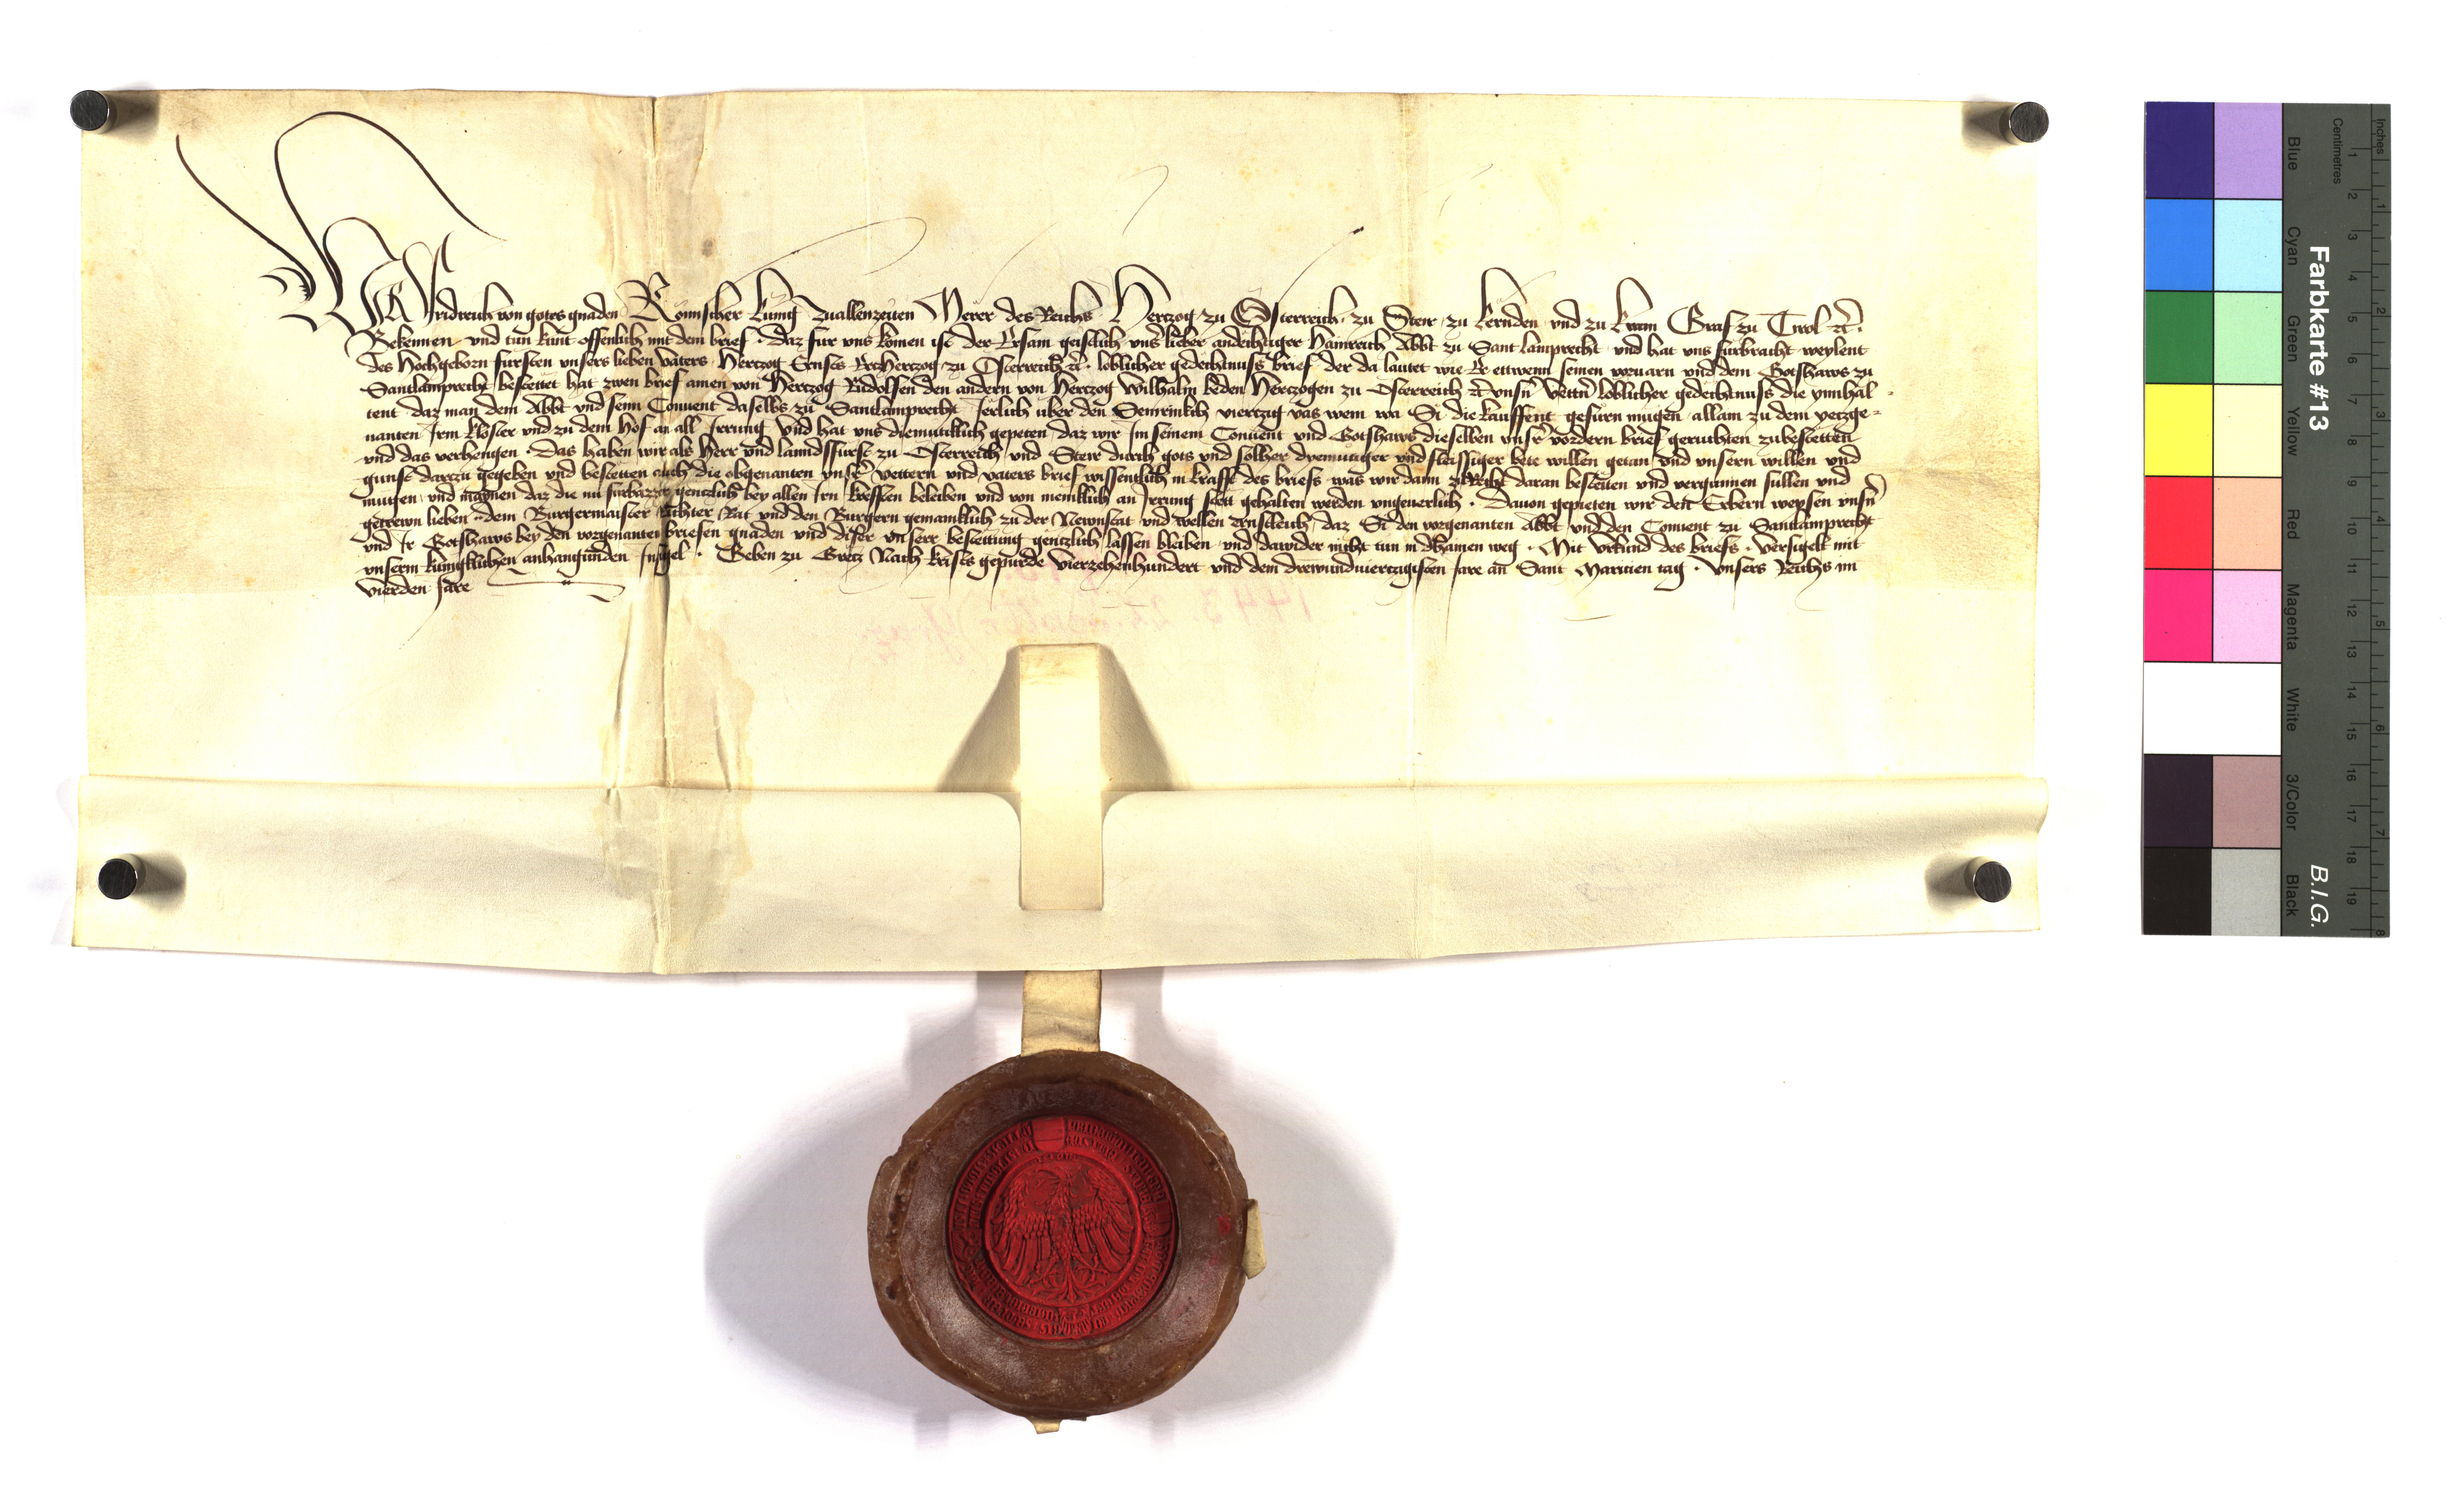 Wir Fridreich von gotes gnaden Römischer kunig Zuallenzeiten Merer des Reichs Hertzog zu Österreich zu Steir zu kernden und zu krain Graf zu Tirol etc̃.
Bekennen und tun kunt offenlich mit dem brief · daz fur uns komen ist der Ersam geistlich unser lieber andechtiger Hainreich Abbt zu Sant lamprecht und hat uns furbracht weylent
des Hochgeborn fursten unsers lieben vaters Hertzog Ernsts Ertzhertzog zu Österreich etc̃. loblicher gedechtnuss brief der da lautet wie Er ettwenn seinen vorvarn und dem Gotshaws zu
Santlamprecht bestettet hat zwen brief ainen von Hertzog Rudolffen den andern von Hertzog Wilhalm beden Hertzogen zu Osterreich etc̃ unsern vettern loblicher gedechtnuss die ynnhal-
tent daz man dem Abbt und seinn Convent daselbs zu Santlamprecht Jerlich uber den Semrinkch viertzig vas wein wa Si die kauffent gefüren mugen allain zu dem yetzge-
nanten Irm kloster und zu dem hof an all Irrung und hat uns diemutiklich gepeten daz wir Im seinem Convent und Gotshaws dieselben unser vordern brief geruchten zubestetten
und das verhengen · Das haben wir als Herr und lanndsfurst zu Osterreich und Steir durch gots und solher diemutiger und fleissiger bete willen getan und unsern willen und
gunst dartzu gegeben und bestetten auch die obgenanten unser vettern und vaters brief wissentlich in krafft des briefs was wir dann zu Recht daran bestetten und vergunnen sullen und
mugen und mainen daz die nu furbazzer gentzlich bey allen Irn krefften beleiben und von meniklich an Irrung stett gehalten werden ungeverlich · Davon gepieten wir den Erbern weysen unsern
getrewn lieben dem Burgermaister Richter Rat und den Burgern gemainklich zu der Newnstat und wellen ernstleich daz Si den vorgenanten Abbt und den Convent zu Santlamprecht
und Ir Gotshaws bey den vorgenanten briefen gnaden und diser unserr bestettung gentzlich lassen bleiben und dawider nicht tun in dhainen weg · Mit urkund des briefs · versigelt mit
unserm kunigklichen anhangunden Insigel · Geben zu Gretz Nach krists gepurde Vierzehenhundert und dem drewundviertzigisten Jare an Sant Maritzen tag · Unsers Reichs im
vierden Jare
Farbkarte #13
B.I.G.
Inches
Centimetres
Blue
Cyan
Green
Yellow
Red
Magenta
White
3/Color
Black
1 2 3 4 5 6 7 8 9 10 11 12 13 14 15 16 17 18 19
1 2 3 4 5 6 7 8